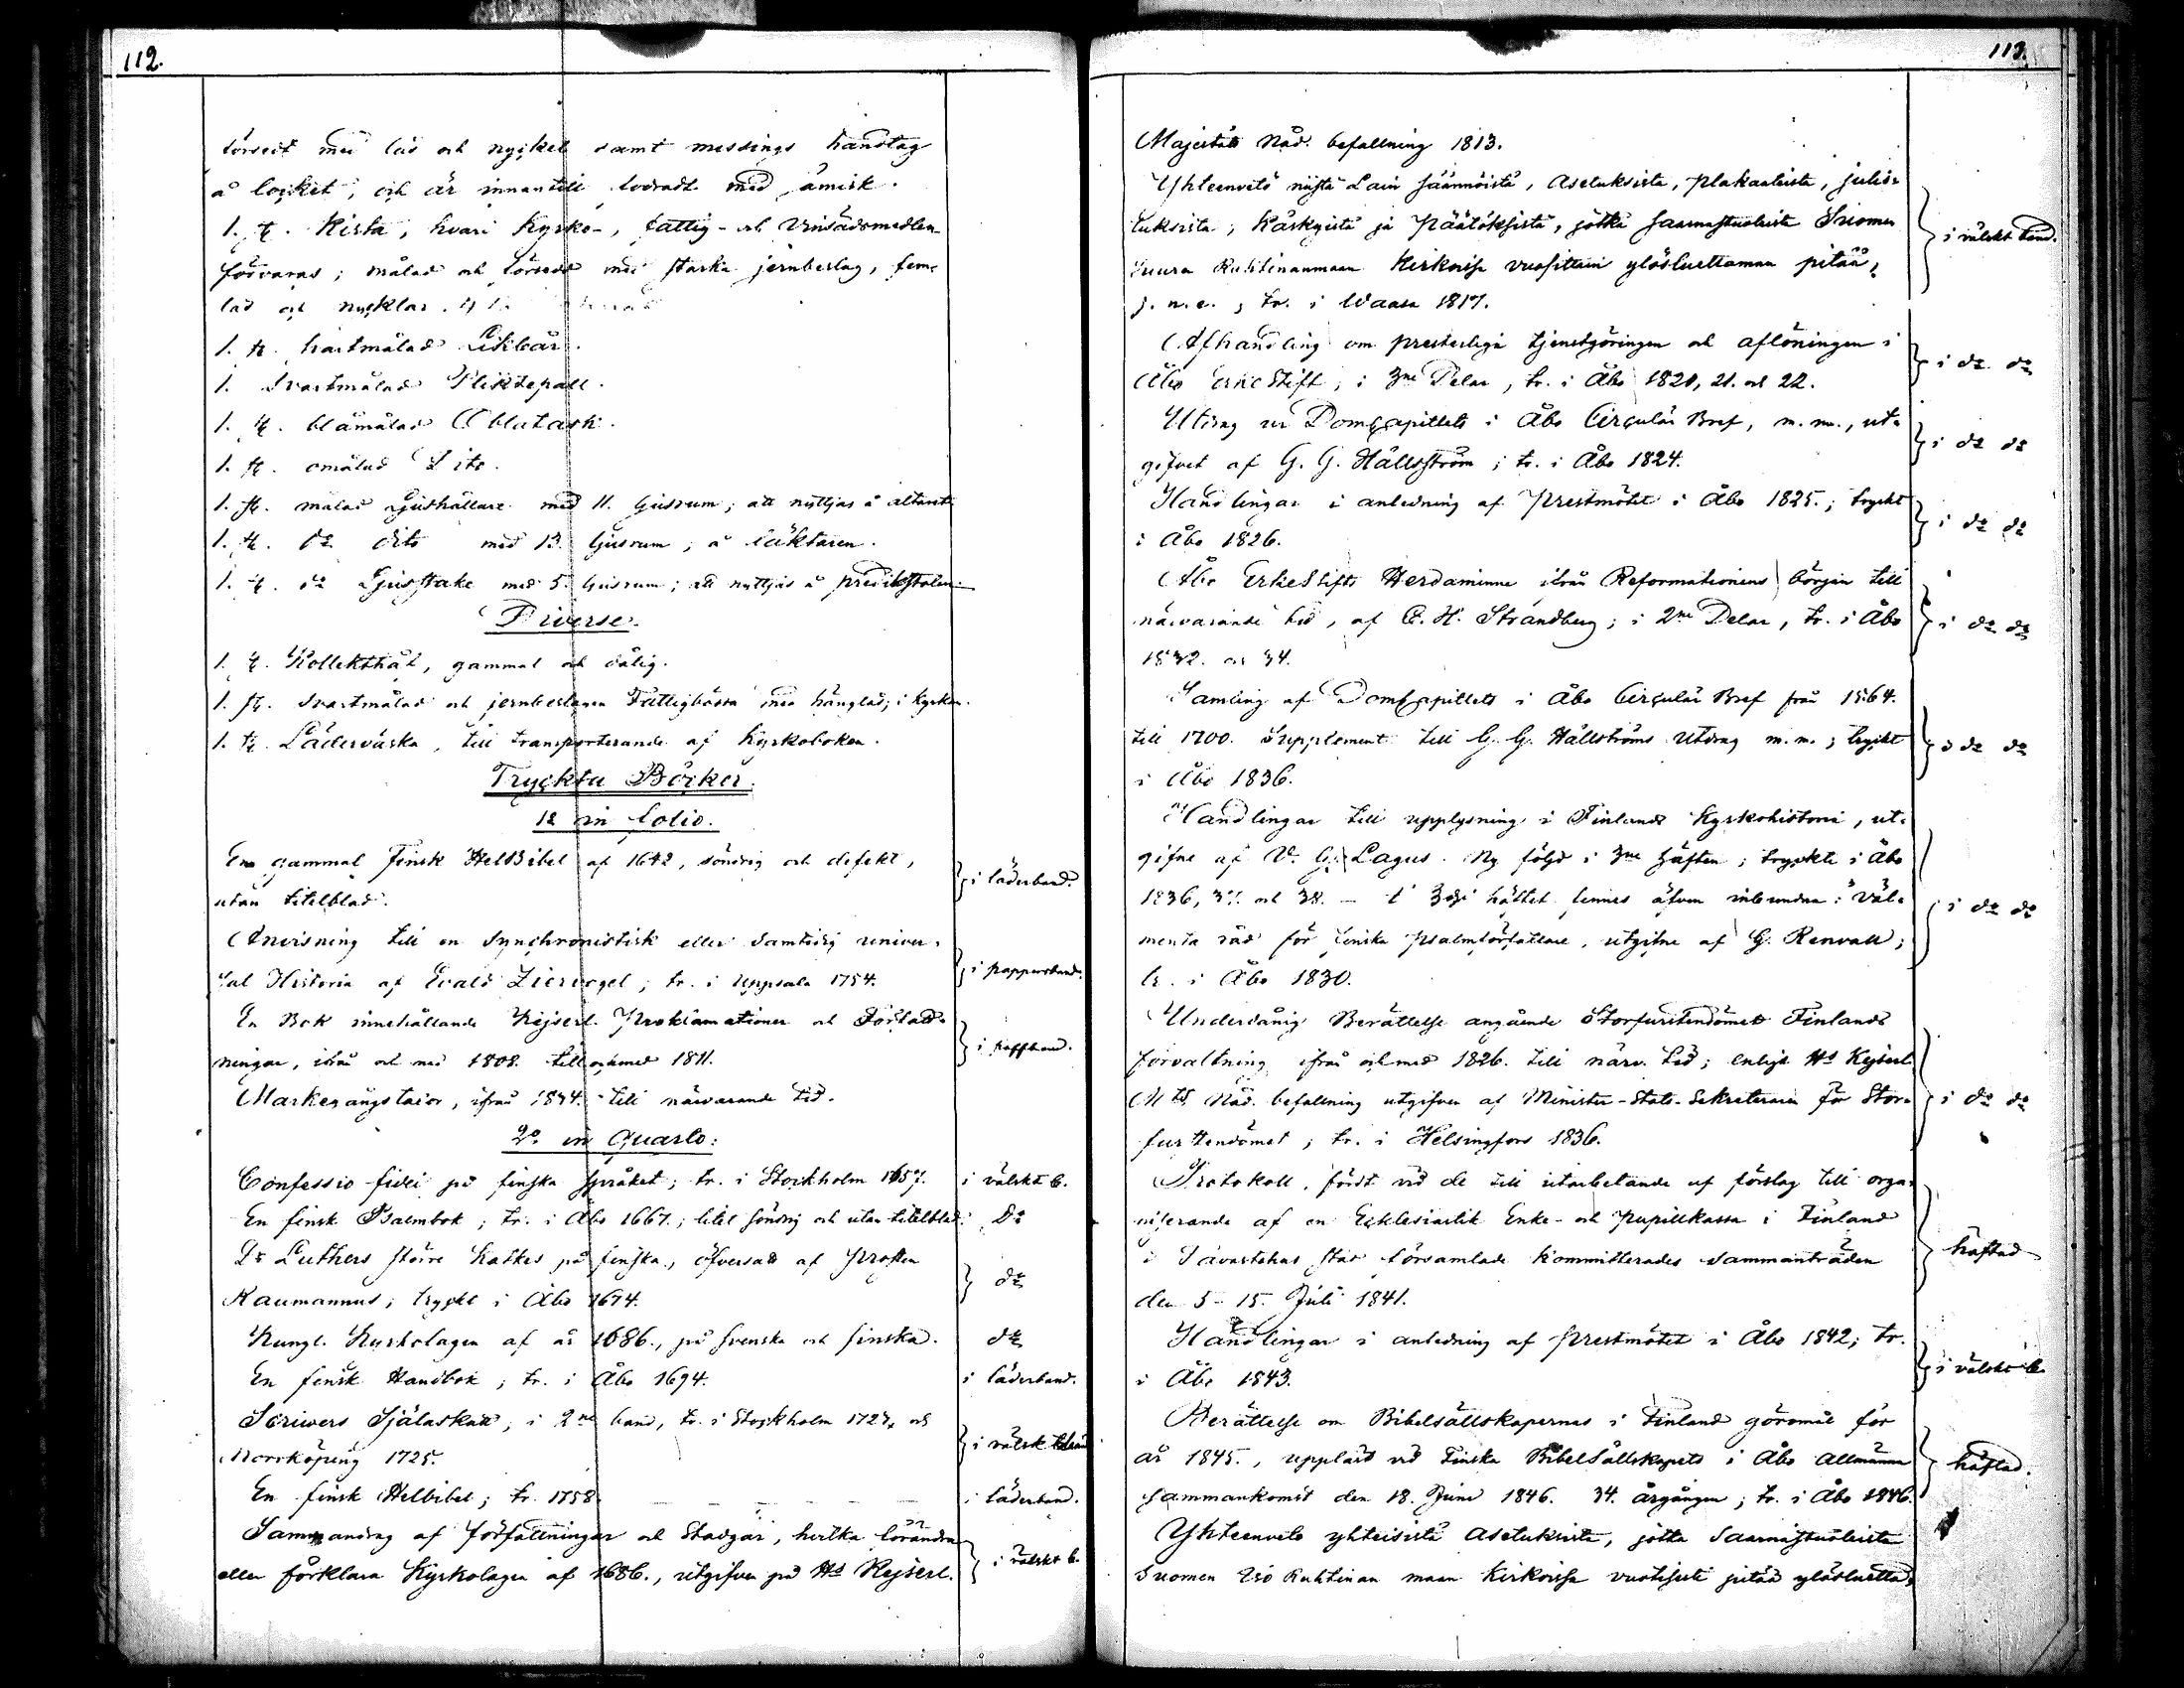 112.
försedt med lås och nyckel samt messings handtag
å locket, och är innantill fodradt med
1. st. Kista, hvari Kyrko-, fattig- och medlen
förvaras; målad och försedd med starka jernbeslag, fem
lås och nycklar.
1. st. svartmålad Likbår.
1. Svartmålad Pliktepall.
1. st. blåmålad Oblatask.
1. st. omålad Dito.
1. st. målad Ljushållare med 11. ljusrum; att nyttjas å altaret
1. st. do dito med 13. ljusrum, å läktaren.
1. st. do Ljusstake med 5. ljusrum; att nyttjas å predikstolen.
Diverse.
1. st. Kollekthåf, gammal och dålig.
1. st. Svartmålad och jernbeslagen Fattigbössa med hänglås; i kyrkan.
1. st. Läderväska, till transporterande af Kyrkoboken.
Tryckta Böcker.
1o in folio.
En gammal finsk HelBibel af 1642, söndrig och defekt, } i läderband.
utan titelblad.
Anvisning till en Synchronistisk eller Samtidig univer-
sal Historia af Evald Ziervogel; tr. i Uppsala 1754. } i pappersband.
En Bok innehållande Kejserl. Proklamationer och Författ-
ningar, ifrån och med 1808. till och med 1811. } i pappband.
Markegångstaxor, ifrån 1834. till närvarande tid.
2o in Quarto:
Confessio fidei på finska språket; tr. i Stockholm 1657. i välskt b.
En finsk Psalmbok; tr. i Åbo 1667.; litet söndrig och utan titelblad. Do
Dr Luthers större Katkes på finska, öfversatt af Prosten
Raumannus; tryckt i Åbo 1674. } do
Kungl. Kyrkolagen af år 1686., på svenska och finska. do
En finsk Handbok; tr. i Åbo 1694. i läderband.
Scrivers Själaskatt, i 2ne band, tr. i Stockholm 1723, och
Norrköping 1725. } i välsk
En finsk Helbibel; tr. 1758. i läderband.
Sammandrag af författningar och Stadgar, hvilka förändra
eller förklara Kyrkolagen af 1686., utgifven på Hs Kejserl. } i välskt b.
113.
Majestäts Nåd. befallning 1813.
Yhteenveto niistä Lain säännöistä, Asetuksista, plakaateista, julis-
tuksista, käskyistä ja Päätöksistä, jotka saarnastuoleista Suomen
Suuren Ruhtinanmaan Kirkoissa vuosittain ylösluettaman pitää,
j. n. e.; tr. i Wasa 1817. } i välskt band.
Afhandling om presterliga tjenstgöringen och aflöningen i
Åbo ErkeStift, i 3ne Delar, tr. i Åbo 1820, 21. och 22. } i do do
Utdrag ur DomCapitlets i Åbo Circulär Bref, m. m., ut-
gifvet af G. G. Hällström; tr. i Åbo 1824. } i do do
Handlingar i anledning af Prestmötet i Åbo 1825.; tryckt
i Åbo 1826. } i do do
Åbo ErkeStifts Herdaminne ifrån Reformationens början till
närvarande tid, af C. H. Strandberg; i 2ne Delar, tr. i Åbo
1832. och 34. } i do do
Samling af DomCapitlets i Åbo Circulär Bref från 1564.
till 1700. Supplement till G. G. Hällströms Utdrag m. m.; tryckt
i Åbo 1836. } i do do
Handlingar till upplysning i Finlands Kyrkohistoria, ut-
gifne af W. G. Lagus. Ny följd i 3ne häften; tryckte i Åbo
1836, 37. och 38. – I 3dje häftet finnes äfven inbundna: Väl-
menta råd för finska psalmförfattare, utgifne af G. Renvall;
tr. i Åbo 1830. } i do do
Underdånig Berättelse angående Storfurstendömet Finlands
förvaltning ifrån och med 1826. till närv. tid; enligt Hs Kejserl.
Mts Nåd. befallning utgifven af Minister-Stats-Sekreteraren för Stor-
furstendömet; tr. i Helsingfors 1836. } i do do
Protokoll, fördt vid de till utarbetande af förslag till orga-
niserande af en Ecklesiastik Enke- och Pupillkassa i Finland
i Tavastehus stad församlade Kommitterades Sammanträden
den 5–15. Juli 1841. } häftad
Handlingar i anledning af Prestmötet i Åbo 1842; tr.
i Åbo 1843. } i välskt b.
Berättelse om Bibelsällskapernas i Finland göromål för
år 1845., uppläst vid Finska BibelSällskapets i Åbo Allmänna
sammankomst den 18. Juni 1846. 34. årgången; tr. i Åbo 1846. } häftad.
Yhteenveto yhteisistä Asetuksista, jotka Saarnastuoleista
Suomen Iso Ruhtinan maan Kirkoissa vuotisesti pitää ylösluetta-